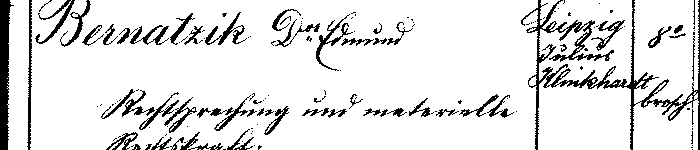 Bernatzik Dr. Edmund
Leipzig
Julius
Klinkhardt
8º
brosch.
Rechtsprechung und materielle
Rechtskraft.